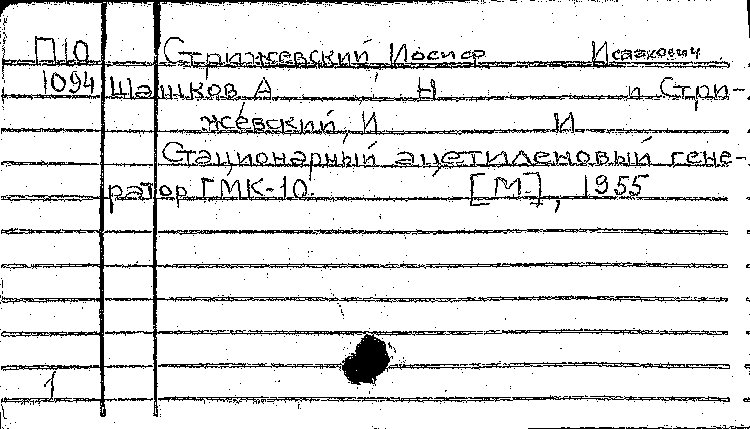 П10 Стрижевский Иосиф Исаакович
1094 Шашков А Н и Стри-
жевский, И И
Стационарный ацетиленовый гене-
ратор ГМК-10. [М.], 1955
1